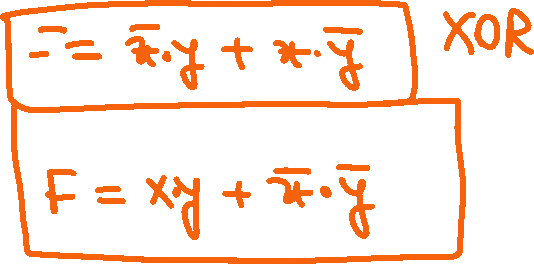 F = x̅·y + x·y̅ XOR
F = xy + x̅·y̅